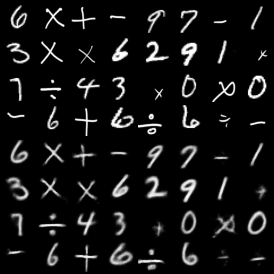 6 × + - 9 7 - 1
3 × × 6 2 9 1 ×
7 ÷ 4 3 × 0 × 0
- 6 + 6 ÷ 6 ÷ -
6 × + - 9 7 - 1
3 × × 6 2 9 1 +
7 ÷ 4 3 + 0 × 0
- 6 + 6 ÷ 6 - -